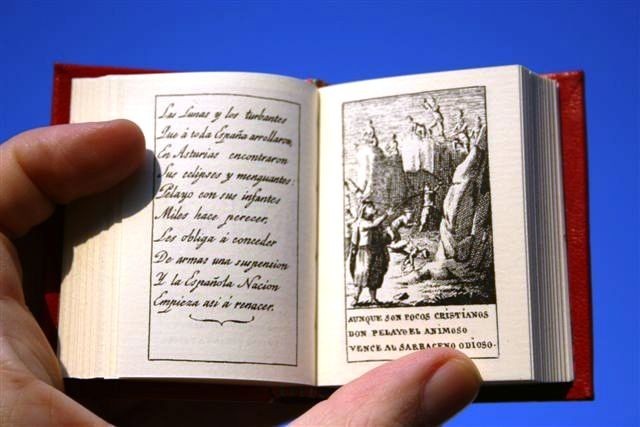 Las Lunas y los turbantes
Que à toda España arrollaron,
En Asturias encontraron
Sus eclipses y menguantes:
Pelayo con sus infantes
Miles hace perecer,
Les obliga á conceder
De armas una suspension
Y la Española Nacion
Empieza asi á renacer.
AUNQUE SON POCOS CRISTIANOS
DON PELAYO EL ANIMOSO
VENCE AL SARRACENO ODIOSO.